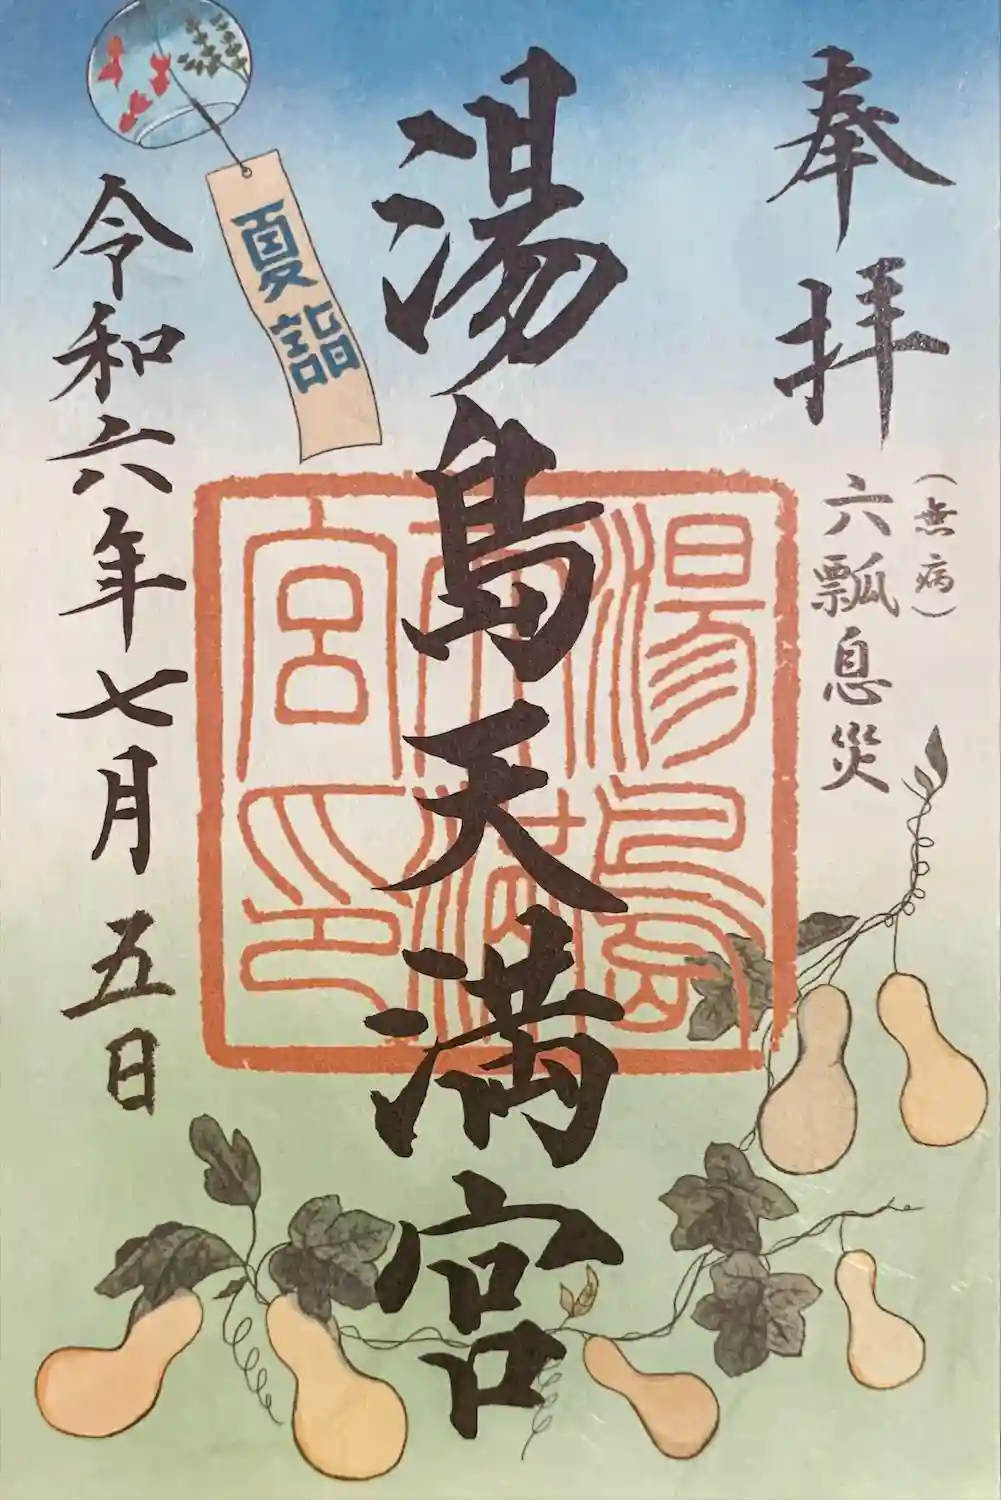 奉拝
（無病）
六瓢息災
湯島天満宮
湯島天満宮印
夏詣
令和六年七月五日